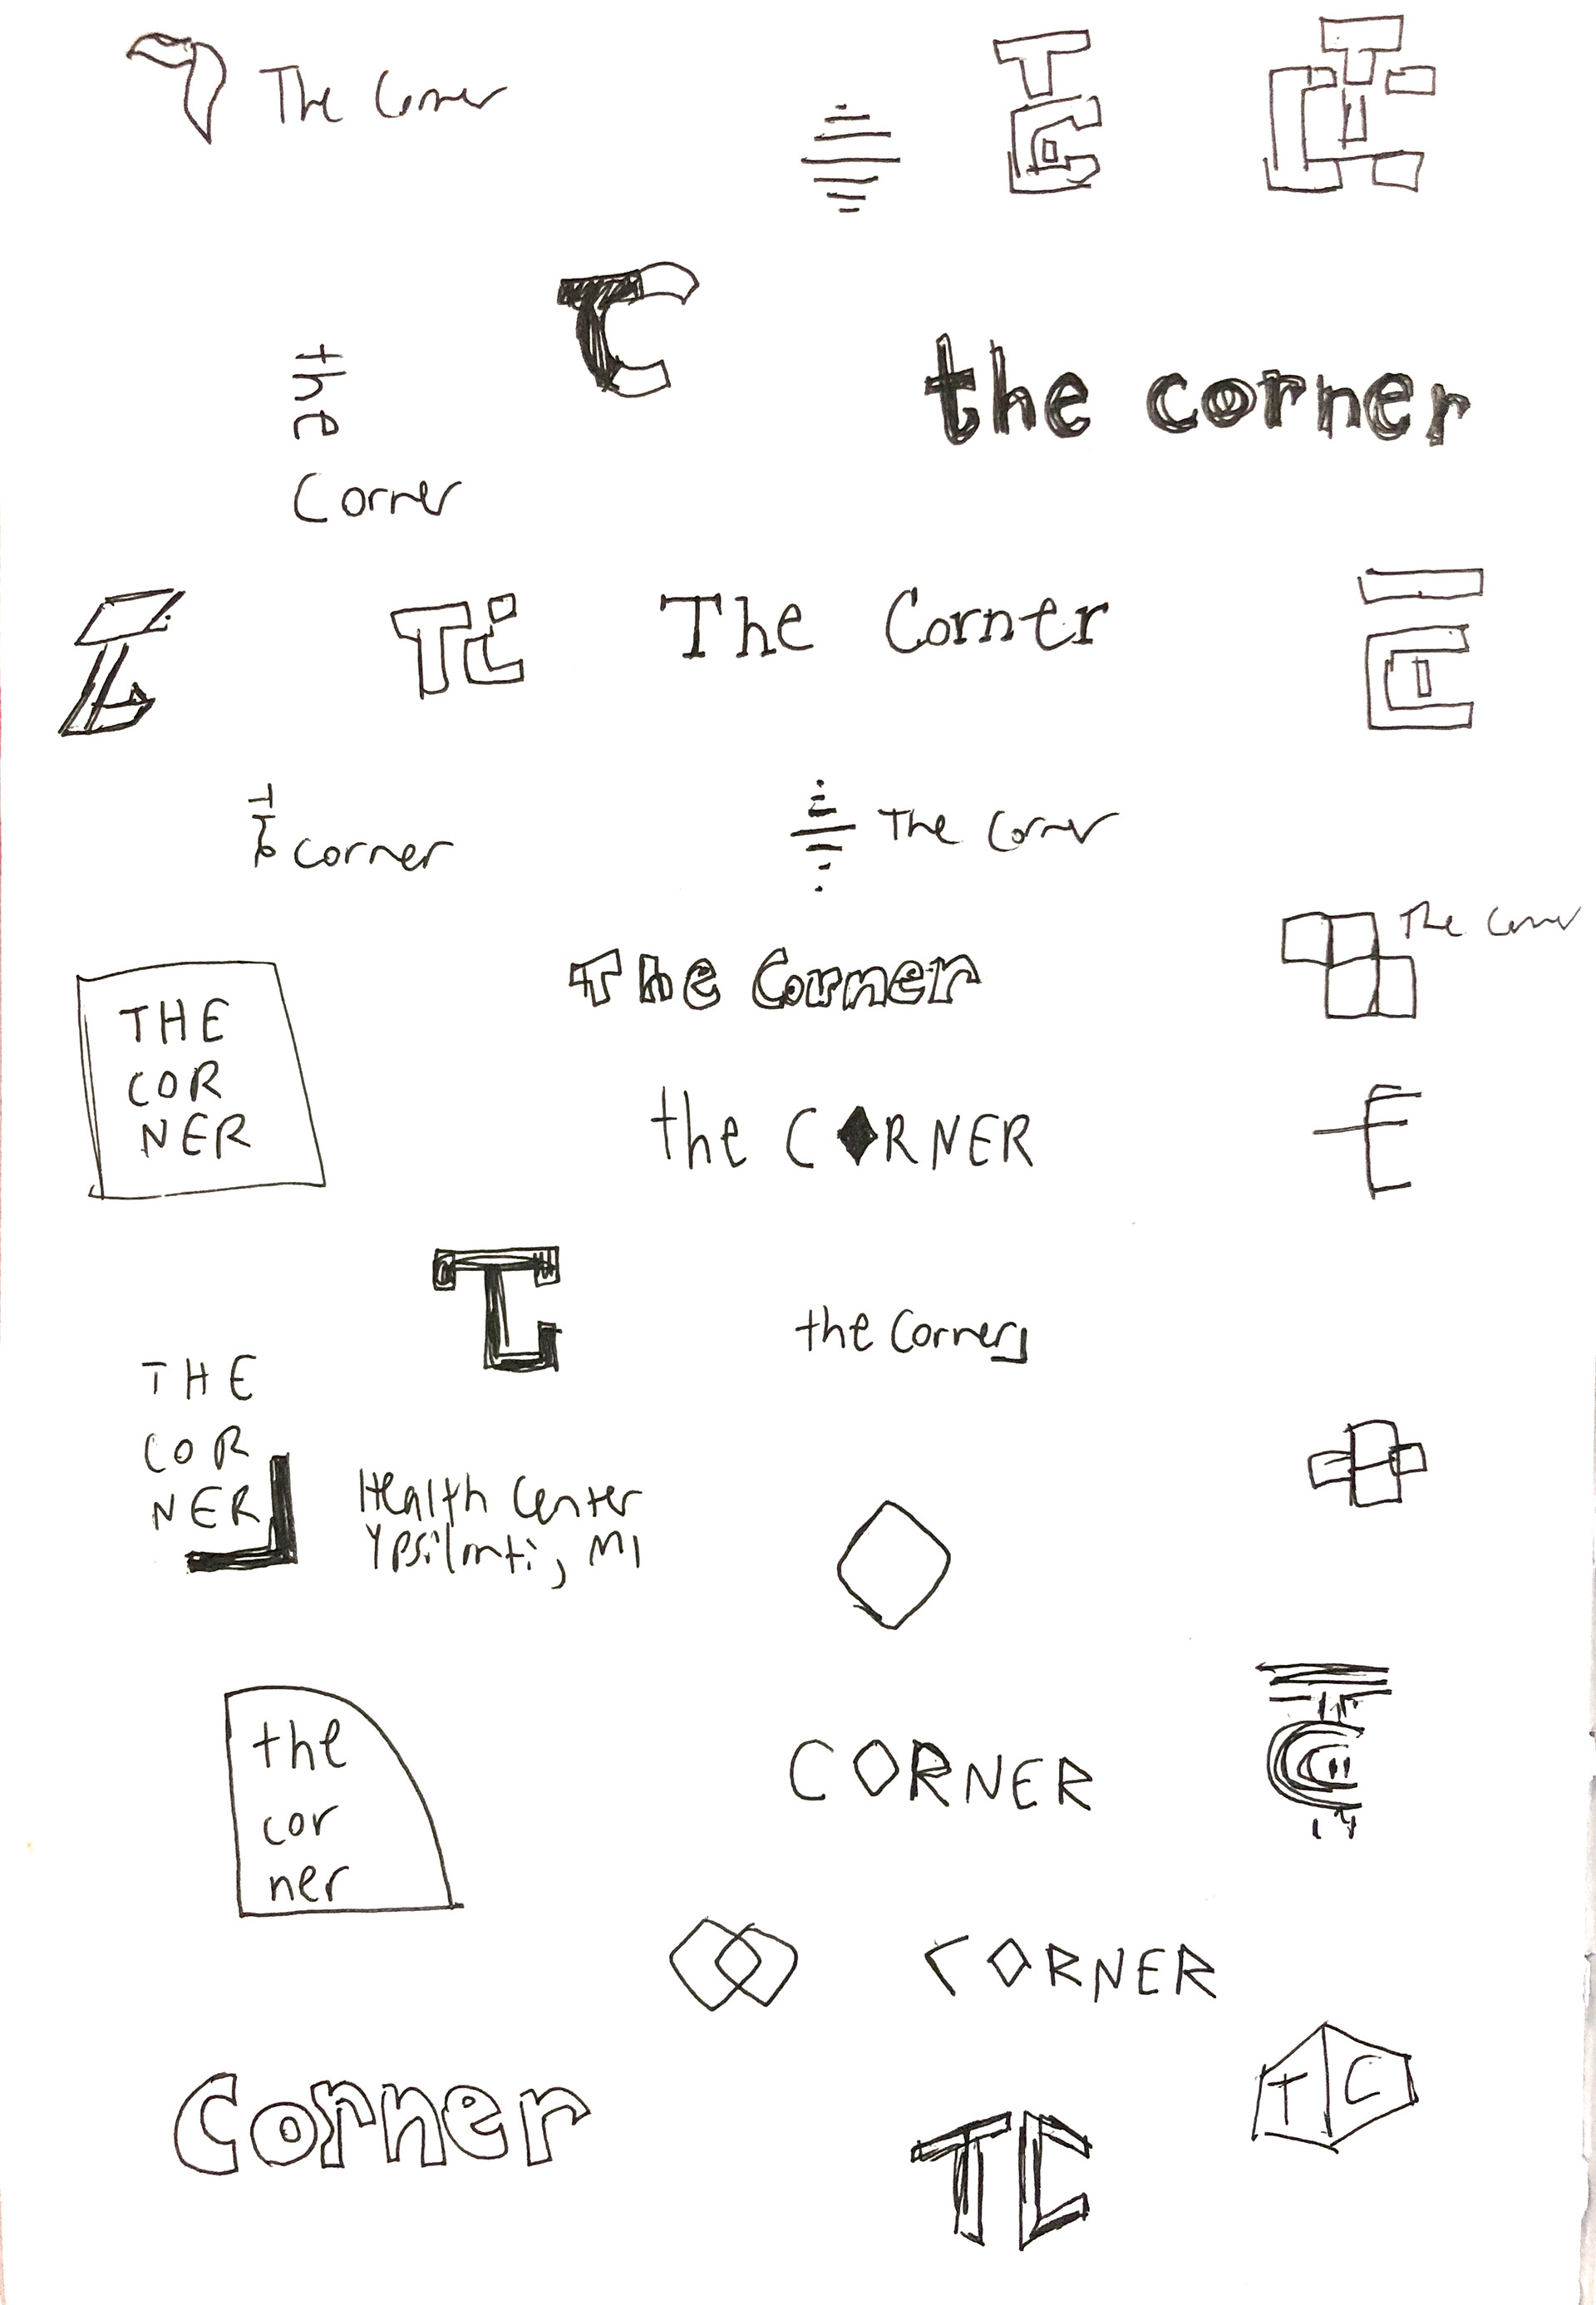 The Corner
T
C
T
C
TC
the
Corner
the corner
TC
The Corner
T
C
The corner
The Corner
The Corner
The Corner
THE
COR
NER
the C♦RNER
TC
the Corner
THE
COR
NER
Health Center
Ypsilanti, MI
the
cor
ner
CORNER
TC
CORNER
Corner
TC
T C